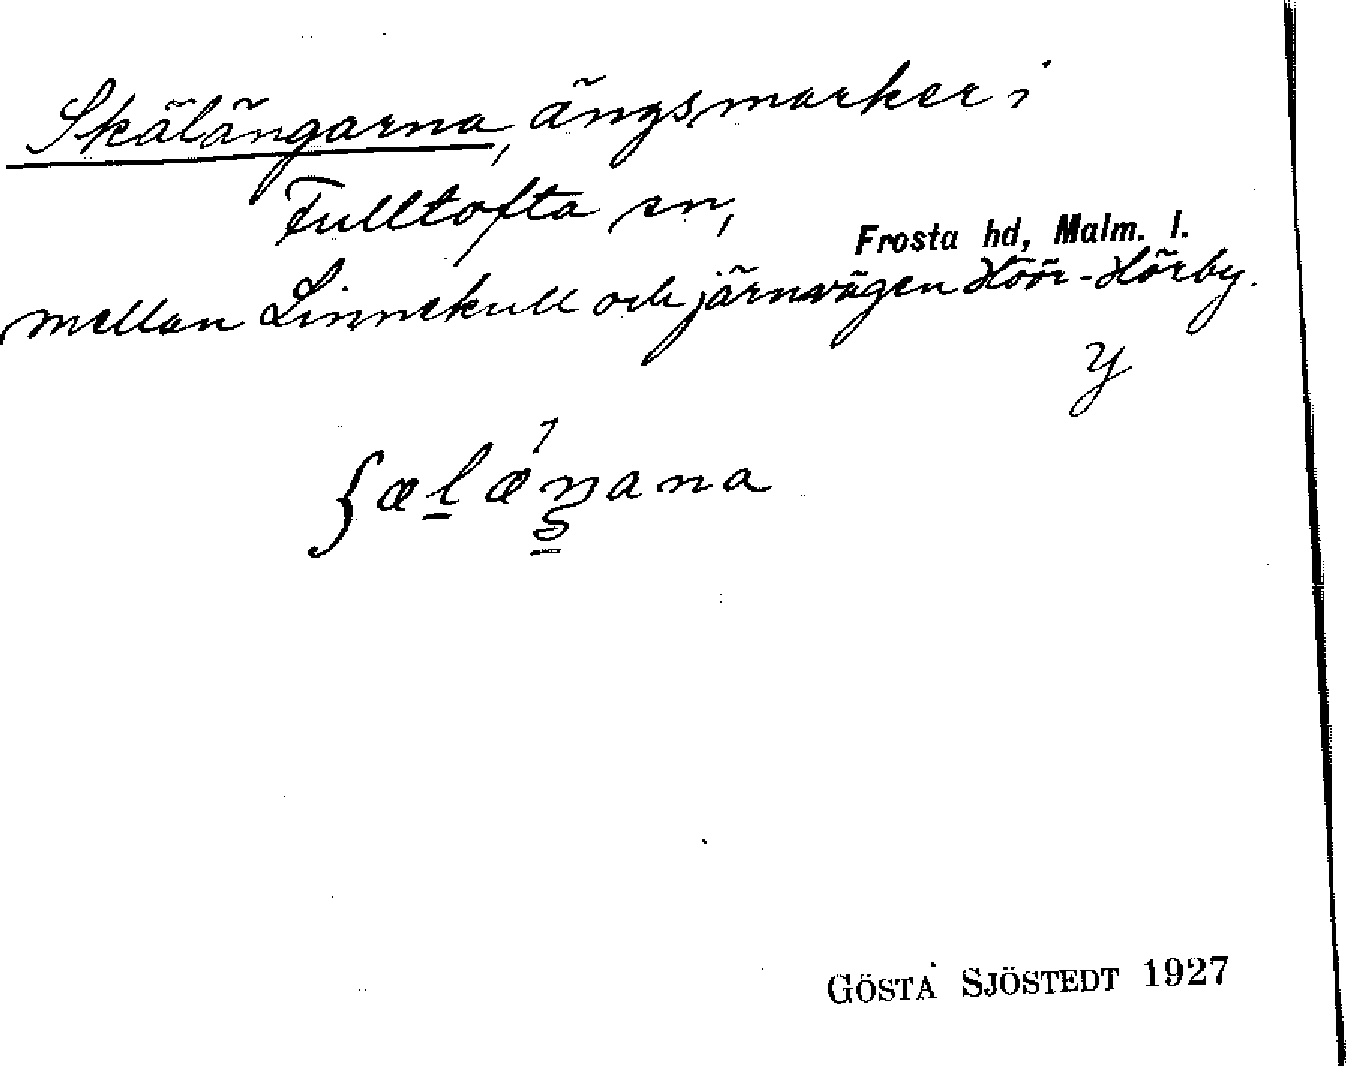 Skälängarna, ängsmarker i
Fulltofta sn,
Frosta hd, Malm. l.
mellan Linnekull och järnvägen Höör-Hörby.
y
GÖSTA SJÖSTEDT 1927